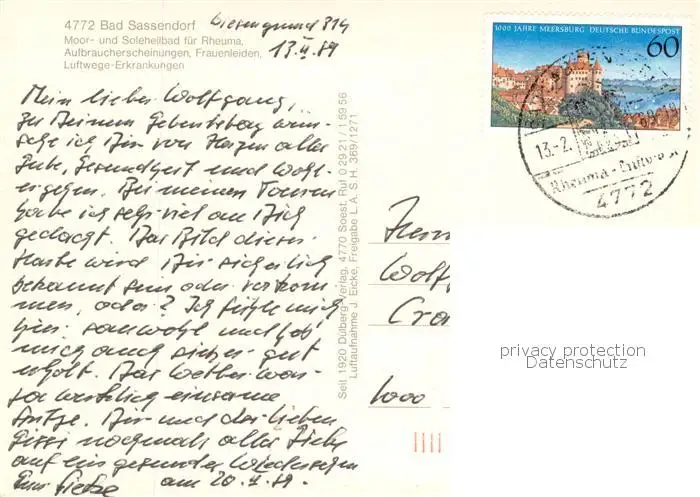 4772 Bad Sassendorf Wiesengrund 314
Moor- und Soleheilbad für Rheuma,
Aufbraucherscheinungen, Frauenleiden,
Luftwege-Erkrankungen
13.II.89
Mein lieber Wolfgang,
zu Deinem Geburtstag wün-
sche ich Dir von Herzen alles
Gute, Gesundheit und Wohl-
ergehen. Bei meinen Touren
habe ich sehr viel an Dich
gedacht. Das Bild dieser
Karte wird Dir sicherlich
bekannt sein oder vorkom-
men, oder? Ich fühle mich
hier sauwohl und hab
mich auch sicher gut
erholt. Das Wetter war
ja wirklich einsame
Spitze. Dir und der lieben
Sissi nochmals alles Liebe
auf ein gesundes Wiedersehen
am 20.II.89.
Seit 1920 Dülberg-Verlag, 4770 Soest, Ruf 0 29 21 / 1 59 56
Luftaufnahme J. Eicke, Freigabe L.A. S.H. 369/1271
1000 JAHRE MEERSBURG DEUTSCHE BUNDESPOST
60
13.-2.
Rheuma-
4772
Herrn
Wolf
Cra
1000
privacy protection
Datenschutz